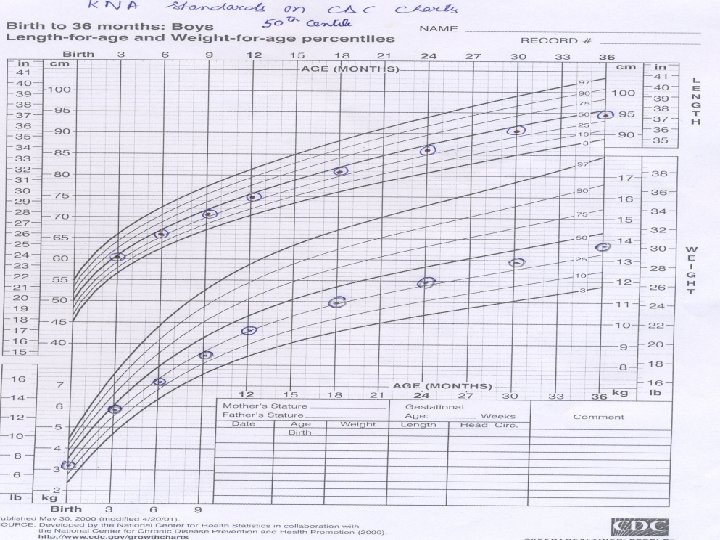 KNA Standards on CDC Charts
50th Centile
Birth to 36 months: Boys
Length-for-age and Weight-for-age percentiles
NAME
RECORD #
Birth 3 6 9 12 15 18 21 24 27 30 33 36
in cm AGE (MONTHS) cm in
41 41
40 100 40
39 100 39
38 38
37 95 95 37
36 90 90 36
35 35
34 85
33
32 80
31
30 75
29
28 70
27
26 65
25
24 60
23
22 55
21
20 50
19
18 45
17
16 40
15
97
90
75
50
25
10
3
L
E
N
G
T
H
97
90
75
50
25
10
3
17 38
16 36
15 34
32
14 30
13 28
12 26
11 24
10 22
9 20
8 18
16
kg lb
W
E
I
G
H
T
16
14
12
10
8
6
lb
7
6
5
4
3
2
kg
AGE (MONTHS)
12 15 18 21 24 27 30 33 36
Mother's Stature
Father's Stature
Gestational
Age: Weeks
Comment
Date Age Weight Length Head Circ.
Birth
Birth 3 6 9
Published May 30, 2000 (modified 4/20/01).
SOURCE: Developed by the National Center for Health Statistics in collaboration with
the National Center for Chronic Disease Prevention and Health Promotion (2000).
http://www.cdc.gov/growthcharts
CDC